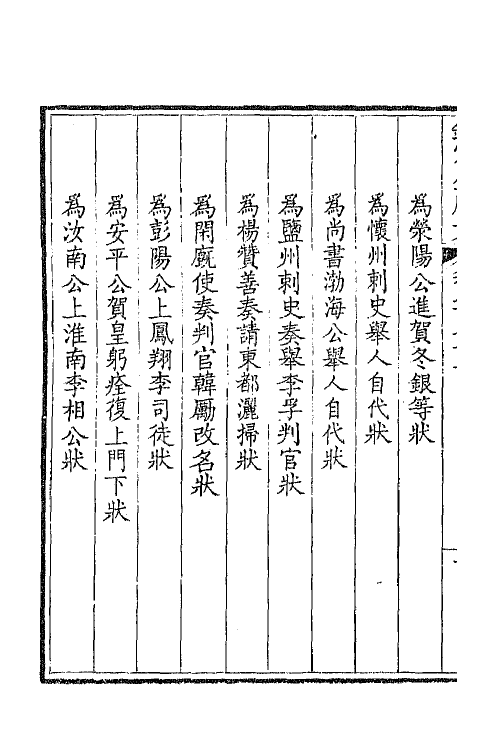 為滎陽公進賀冬銀等狀
為懷州刺史舉人自代狀
為尚書渤海公舉人自代狀
為鹽州刺史奏舉李孚判官狀
為楊贊善奏請東都灑掃狀
為閑廄使奏判官韓勵改名狀
為彭陽公上鳳翔李司徒狀
為安平公賀皇躬痊復上門下狀
為汝南公上淮南李相公狀